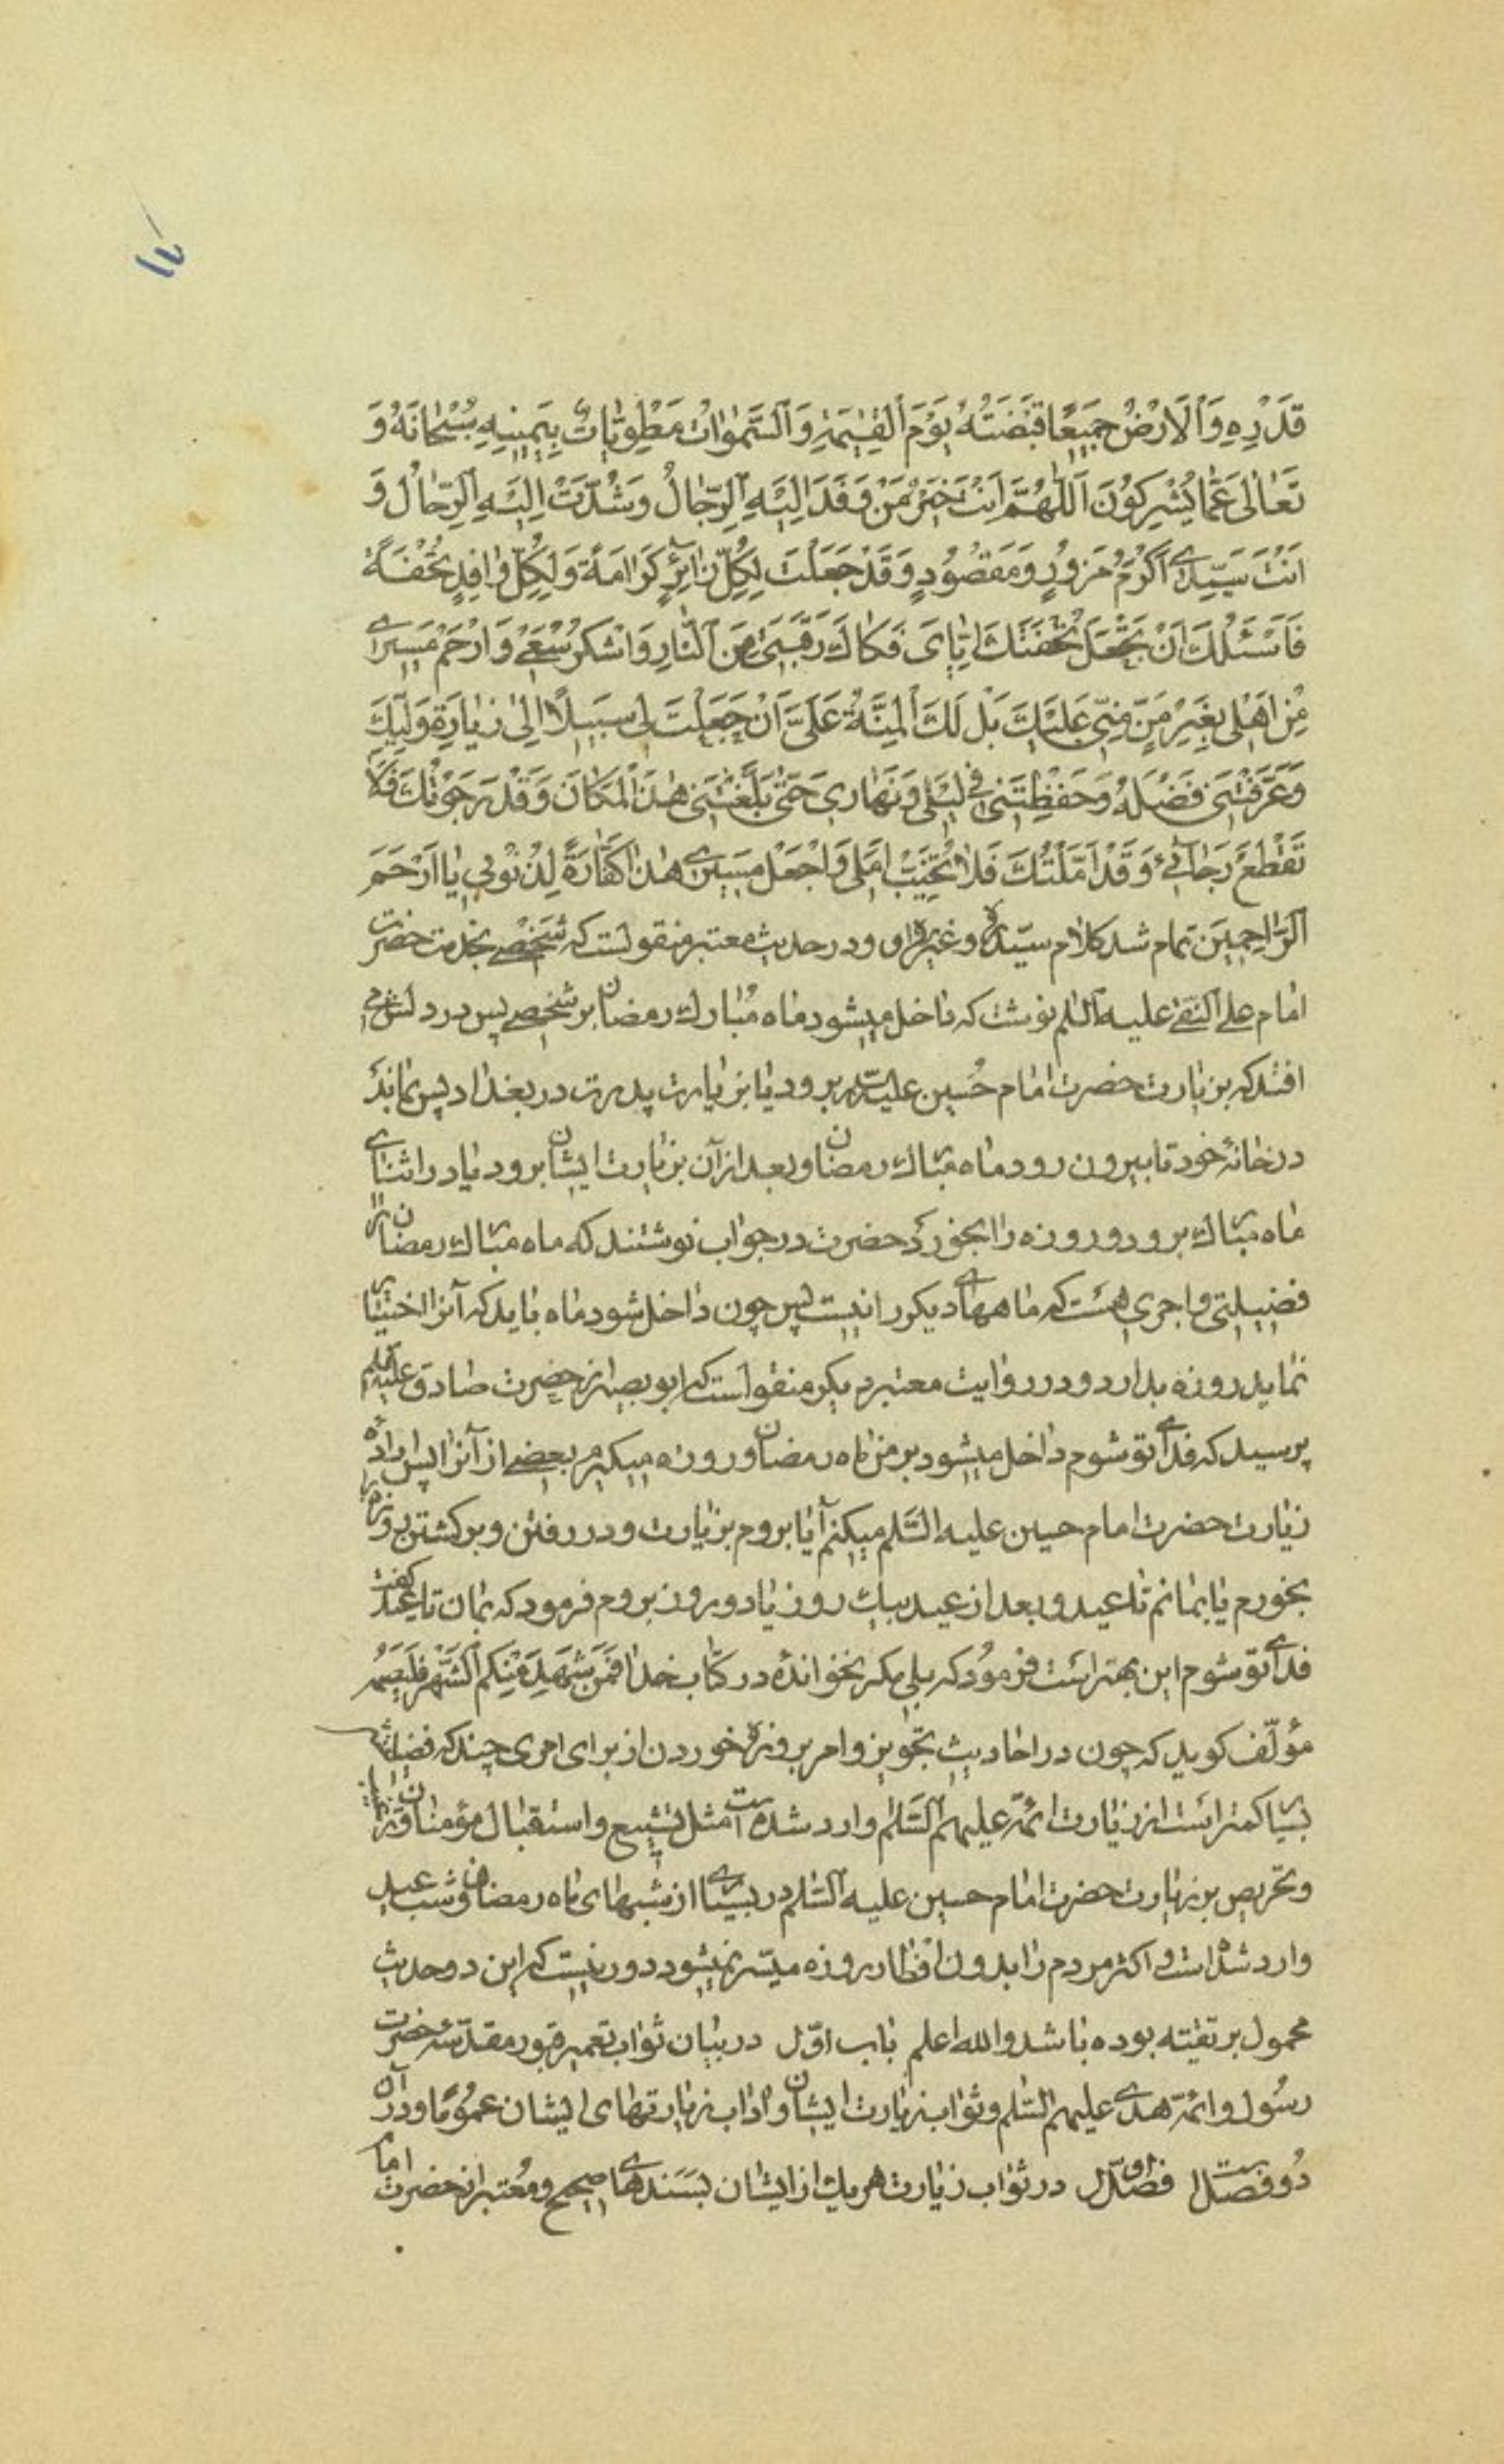 قَدْرِهِ وَالْاَرْضُ جَمِيعًا قَبْضَتُهُ يَوْمَ الْقِيٰمَةِ وَالسَّمٰوَاتُ مَطْوِيَّاتٌ بِيَمِينِهِ سُبْحَانَهُ وَ
تَعَالٰى عَمَّا يُشْرِكُونَ اَللّٰهُمَّ اَنْتَ خَيْرُ مَنْ وَفَدَ اِلَيْهِ الرِّجَالُ وَشُدَّتْ اِلَيْهِ الرِّحَالُ وَ
اَنْتَ سَيِّدِي اَكْرَمُ مَزُورٍ وَمَقْصُودٍ وَقَدْ جَعَلْتَ لِكُلِّ زَائِرٍ كَرَامَةً وَلِكُلِّ وَافِدٍ تُحْفَةً
فَاَسْئَلُكَ اَنْ تَجْعَلَ تُحْفَتَكَ اِيَّايَ فَكَاكَ رَقَبَتِي مِنَ النَّارِ وَاشْكُرْ سَعْيِي وَارْحَمْ مَسِيرِي
مِنْ اَهْلِي بِغَيْرِ مَنٍّ مِنِّي عَلَيْكَ بَلْ لَكَ الْمِنَّةُ عَلَيَّ اَنْ جَعَلْتَ لِي سَبِيلًا اِلٰى زِيَارَةِ وَلِيِّكَ
وَعَرَّفْتَنِي فَضْلَهُ وَحَفِظْتَنِي فِي لَيْلِي وَنَهَارِي حَتّٰى بَلَّغْتَنِي هٰذَا الْمَكَانَ وَقَدْ رَجَوْتُكَ فَلَا
تَقْطَعْ رَجَائِي وَقَدْ اَمَّلْتُكَ فَلَا تُخَيِّبْ اَمَلِي وَاجْعَلْ مَسِيرِي هٰذَا كَفَّارَةً لِذُنُوبِي يَا اَرْحَمَ
الرَّاحِمِينَ تمام شد كلام سيّد ره وغير او ودر حديث معتبر منقولست كه شخصي بخدمت حضرت
امام علي النقي عليه السلم نوشت كه داخل ميشود ماه مبارك رمضان بر شخصي پس در دلش مي
افتد كه بزيارت حضرت امام حُسين عليه السلم برود يا بزيارت پدرت در بغداد پس بماند
در خانۀ خود تا بيرون رود ماه مبارك رمضان وبعد از آن بزيارت ايشان برود يا در اثناي
ماه مبارك برود وروزه را بخورد حضرت در جواب نوشتند كه ماه مبارك رمضان را
فضيلتي واجري هست كه ماههاي ديكر را نيست پس چون داخل شود ماه بايد كه آنرا اختيار
نمايد روزه بدارد ودر روايت معتبر ديكر منقولست كه ابو بصير از حضرت صادق عليه السلم
پرسيد كه فداي تو شوم داخل ميشود بر من ماه رمضان وروزه ميكيرم بعضي از آنرا پس اراده
زيارت حضرت امام حسين عليه السَّلم ميكنم آيا بروم بزيارت ودر رفتن وبركشتن روزه را
بخورم يا بمانم تا عيد وبعد از عيد بيك روز يا دو روز بروم فرمود كه بمان تا عيد كفت
فداي تو شوم اين بهتر است فرمُود كه بلي مكر نخوانده در كتاب خدا فَمَنْ شَهِدَ مِنْكُمُ الشَّهْرَ فَلْيَصُمْهُ
مؤلّف كويد كه چون در احاديث تجويز وامر بروزه خوردن از براي امري چند كه فضيلتش
بسيار كمتر است از زيارت ائمّه عليهم السَّلم وارد شده است مثل تشييع واستقبال مؤمنان
وتحريص بر زيارت حضرت امام حسين عليه السّلم در بسياري از شبهاي ماه رمضان وشب عيد
وارد شده است واكثر مردم را بدون افطار روزه ميسّر نميشود دور نيست كه اين دو حديث
محمول بر تقيّه بوده باشد والله اعلم باب اوّل در بيان ثواب تعمير قبور مقدّسه حضرت
رسُول وائمّه هدي عليهم السّلم وثواب زيارت ايشان واداب زيارتهاي ايشان عمومًا ودر آن
دُو فصل است فصل اوّل در ثواب زيارت هر يك از ايشان بسَندهاي صحيح ومُعتبر از حضرت امام